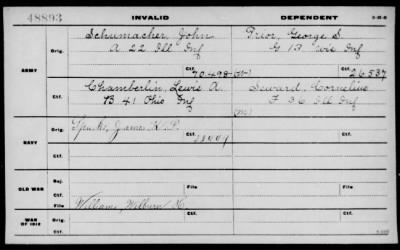 48893 INVALID DEPENDENT 3-35-6
Schumacher, John Prior, George S.
Orig. A 22 Ill Inf G 13 Wis Inf
ARMY Ctf. 70498 Ctf. 26537
Chamberlin, Lewis A. Seward, Cornelius
Ctf. B 41 Ohio Inf F 36 Ill Inf
(m)
Orig. James K. P.
Ctf.
NAVY
Ctf.
Orig. File File
OLD WAR
Ctf.
Williams, Wilburn K.
Orig. Ctf. Ctf.
WAR OF 1812
Ctf.